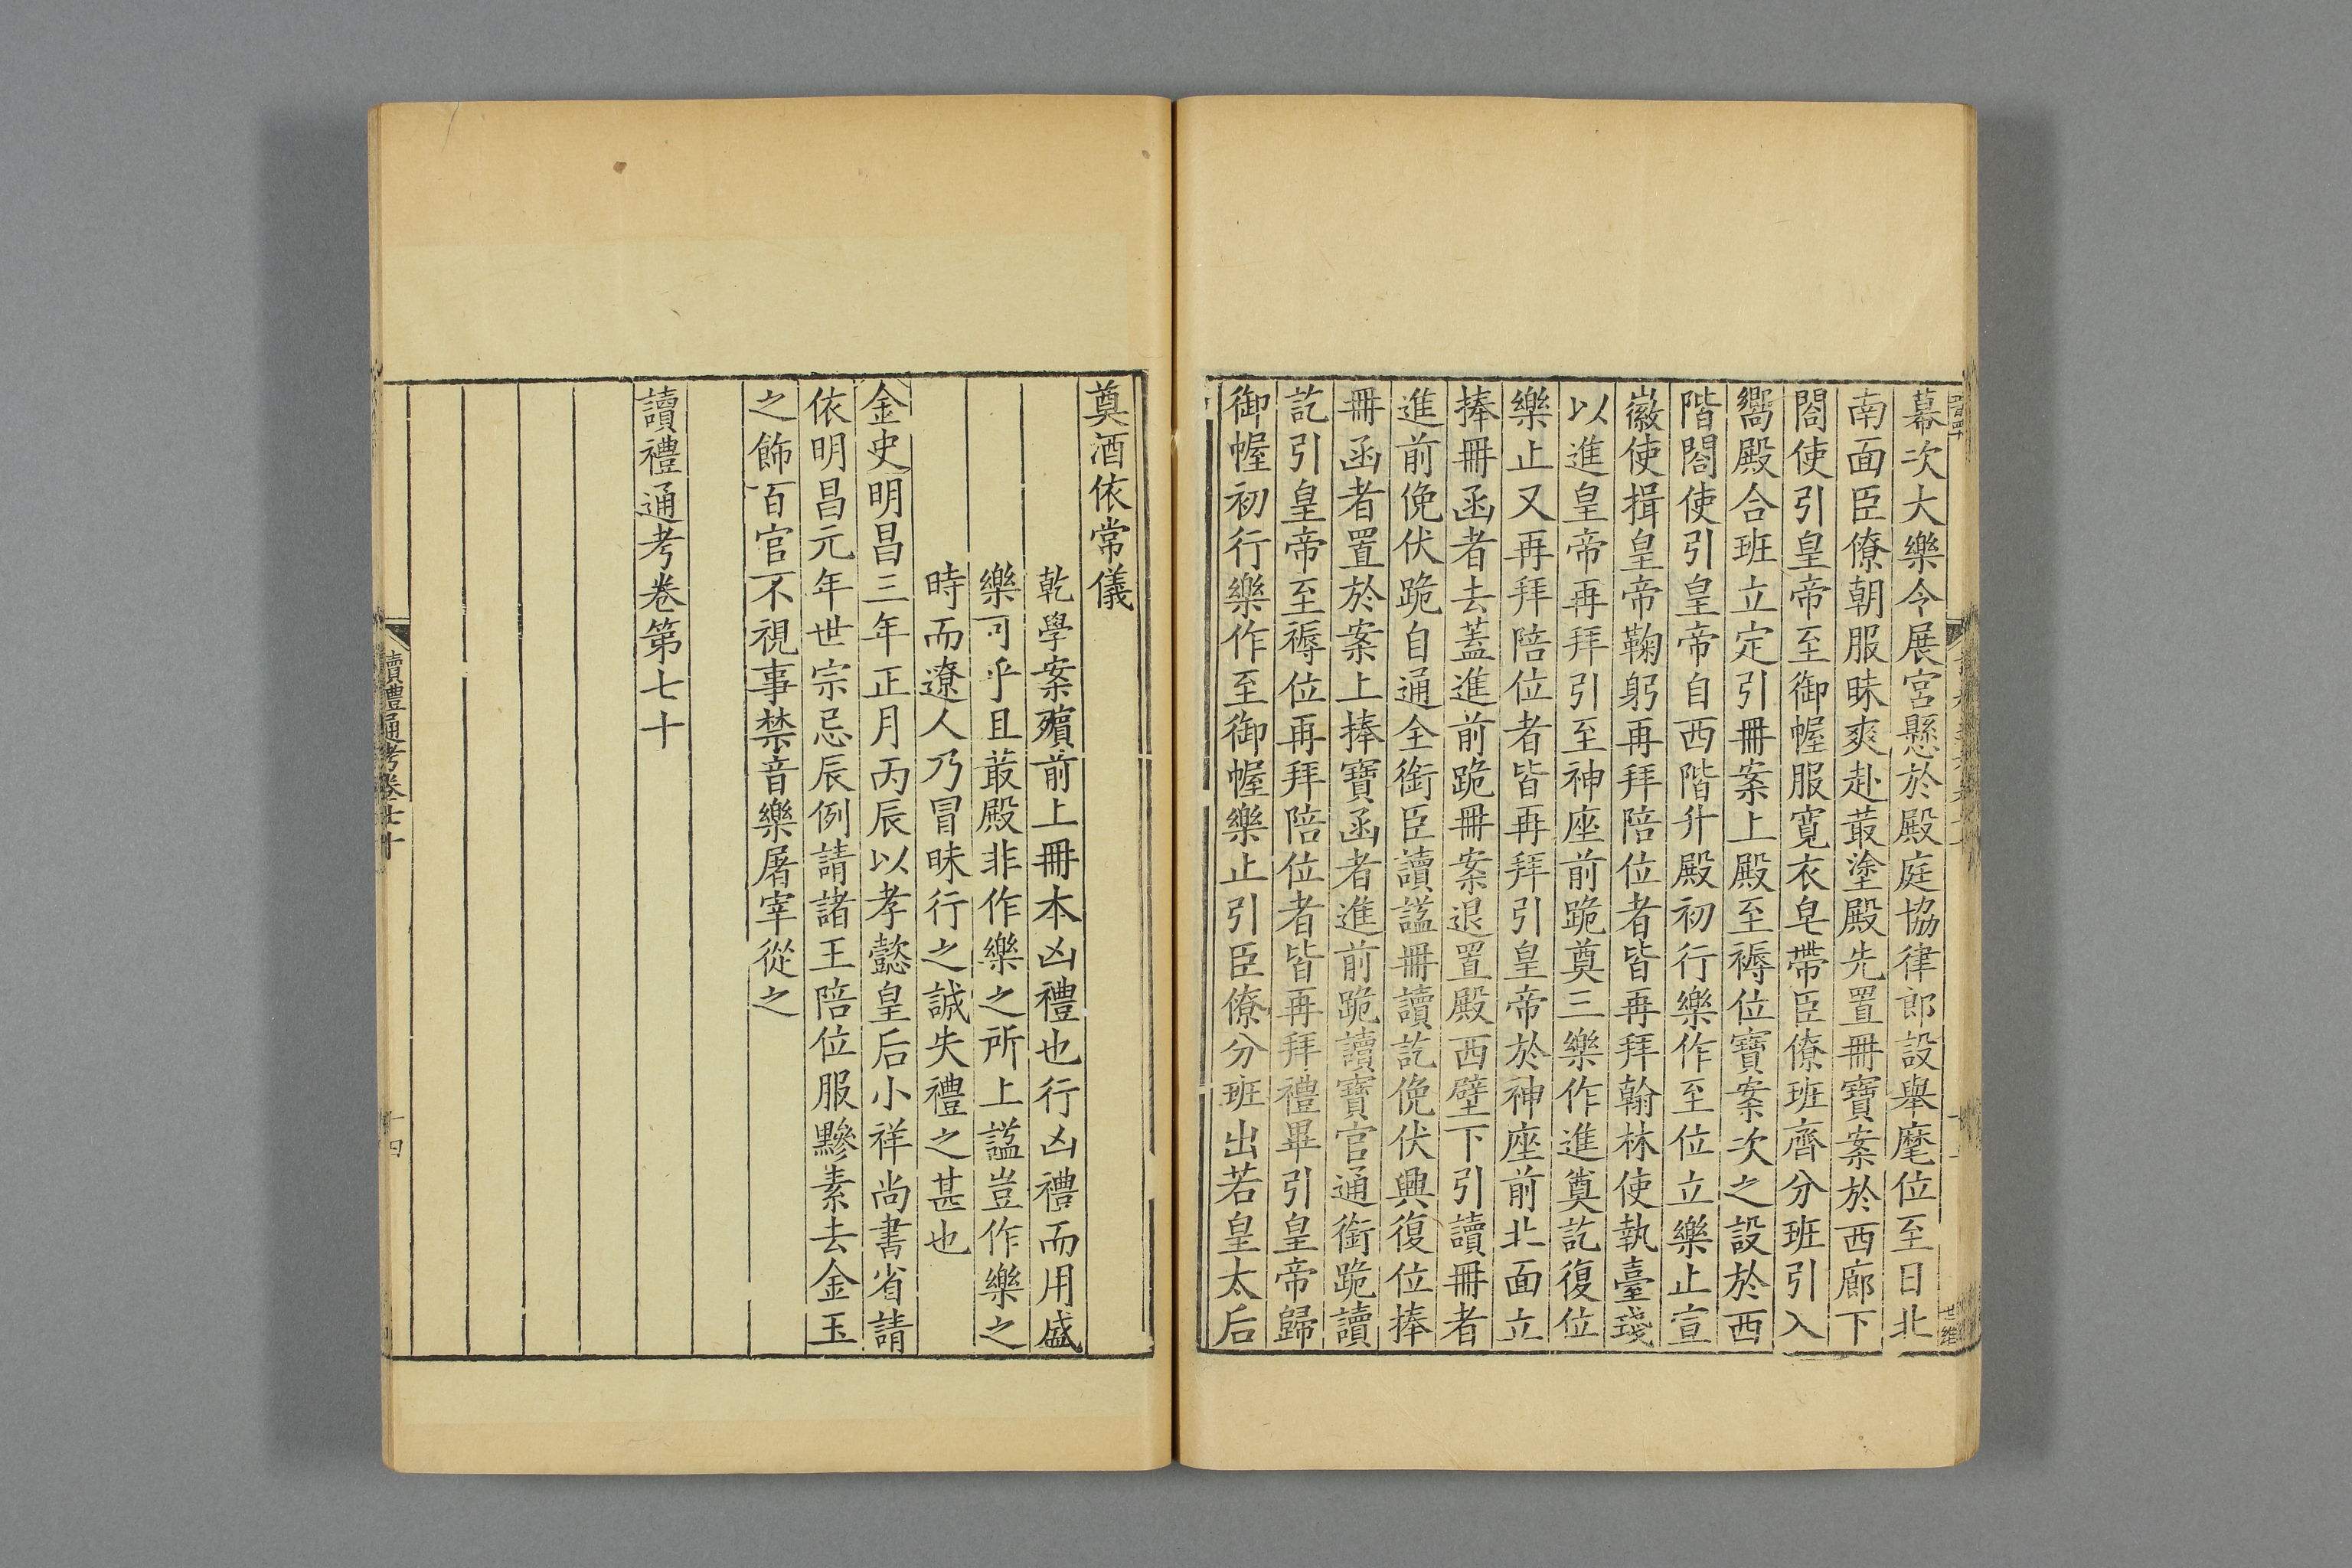 幕次大樂令展宮懸於殿庭協律郎設舉麾位至日北
南面臣僚朝服昧爽赴菆塗殿先置冊寶案於西廊下
閤使引皇帝至御幄服寬衣皂帶臣僚班齊分班引入
嚮殿合班立定引冊案上殿至褥位寶案次之設於西
階閤使引皇帝自西階升殿初行樂作至位立樂止宣
徽使揖皇帝鞠躬再拜陪位者皆再拜翰林使執臺琖
以進皇帝再拜引至神座前跪奠三樂作進奠訖復位
樂止又再拜陪位者皆再拜引皇帝於神座前北面立
捧冊函者去蓋進前跪冊案退置殿西壁下引讀冊者
進前俛伏跪自通全銜臣讀謚冊讀訖俛伏興復位捧
冊函者置於案上捧寶函者進前跪讀寶官通銜跪讀
訖引皇帝至褥位再拜陪位者皆再拜禮畢引皇帝歸
御幄初行樂作至御幄樂止引臣僚分班出若皇太后
奠酒依常儀
乾學案殯前上冊本凶禮也行凶禮而用盛
樂可乎且菆殿非作樂之所上謚豈作樂之
時而遼人乃冒昧行之誠失禮之甚也
金史明昌三年正月丙辰以孝懿皇后小祥尚書省請
依明昌元年世宗忌辰例請諸王陪位服黲素去金玉
之飾百官不視事禁音樂屠宰從之
讀禮通考卷第七十
讀禮通考卷七十
十四